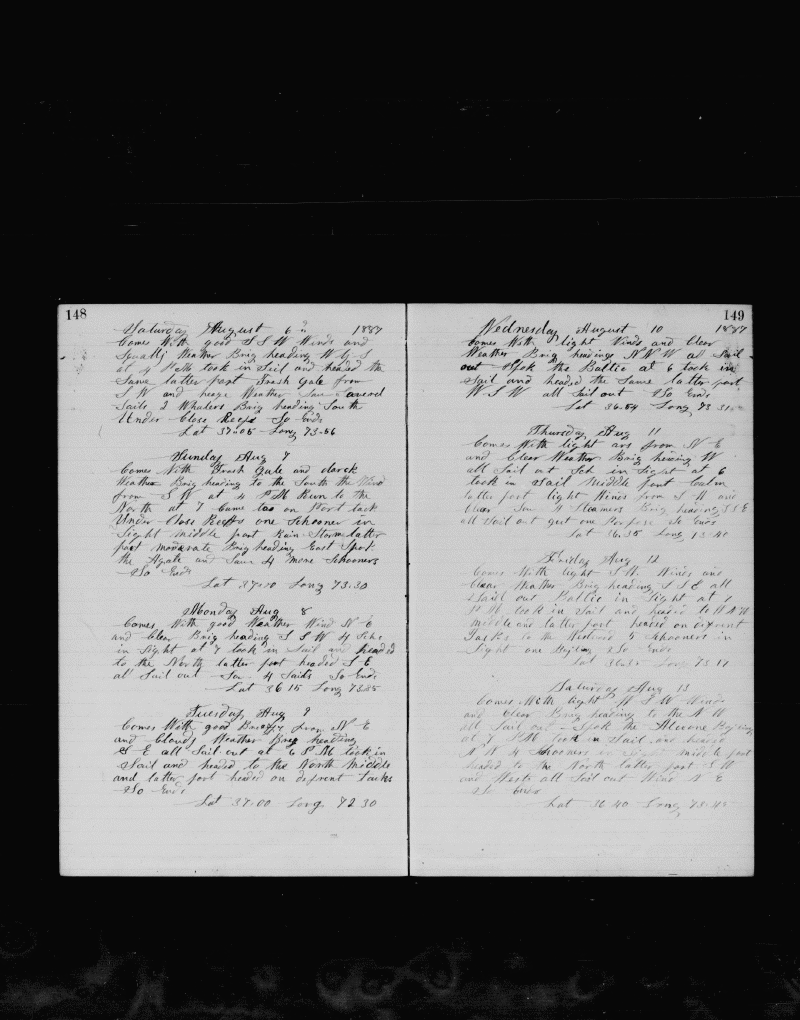 148
Saturday August 6th 1887
Comes With good S S W Winds and
Squally Weather Brig heading W by S
at 4 P M took in Sail and headed the
Same latter part Fresh Gale from
S W and Weather Saw Several
Sails 2 Whalers Brig heading South
Under Close Reefs So Ends
Lat 37-05 Long 73-56
Sunday Aug 7
Comes With Fresh Gale and darck
Weather Brig heading to the South the Wind
from S W at 4 P M Run to the
North at 7 Came too on Port tack
Under Close Reefs one Schooner in
Sight middle part Rain Storm latter
part moderate Brig heading East Spok
the Agate and Saw 4 more Schooners
So Ends
Lat 37-10 Long 73-30
Monday Aug 8
Comes With good Weather Wind N E
and Clear Brig heading S S W 4 Schs
in Sight at 7 took in Sail and headed
to the North latter part headed S E
all Sail out Saw 4 Sails So Ends
Lat 36 15 Long 73-35
Tuesday Aug 9
Comes With good Breezy from N E
and Cloudy Weather Brig heading
S E all Sail out at 6 P M took in
Sail and headed to the North middle
and latter part headed on difrent Tacks
So Ends
Lat 37-00 Long 72 30
149
Wednesday August 10 1887
Comes With light Winds and Clear
Weather Brig headings N N W all Sail
out Spok the Baltic at 6 took in
Sail and headed the Same latter part
W S W all Sail out So Ends
Lat 36-54 Long 73
Thursday Aug 11
Comes With light ars from N E
and Clear Weather Brig heaing W
all Sail out Sch in Sight at 6
took in Sail Middle part Calm
latter part light Winds from S W and
Clear Saw 4 Steamers Brig heading S S E
all Sail out got one Porpose So Ends
Lat 36-35 Long 73-40
Friday Aug 12
Comes With light S W Winds and
Clear Weather Brig heading S S E all
Sail out Baltic in Sight at 7
P M took in Sail and headed to W N W
middle and latter part headed on difrent
Tacks to the 5 Schooners in
Sight one So Ends
Lat 36-35 Long 73 17
Saturday Aug 13
Comes With light W S W Winds
and Clear Brig heading to the N W
all Sail out Spok the
at 7 P M took in Sail and headed
N W 4 Shooners in Sight middle part
headed to the North latter part S W
and West all Sail out Wind N E
So Ends
Lat 36 40 Long 73-45